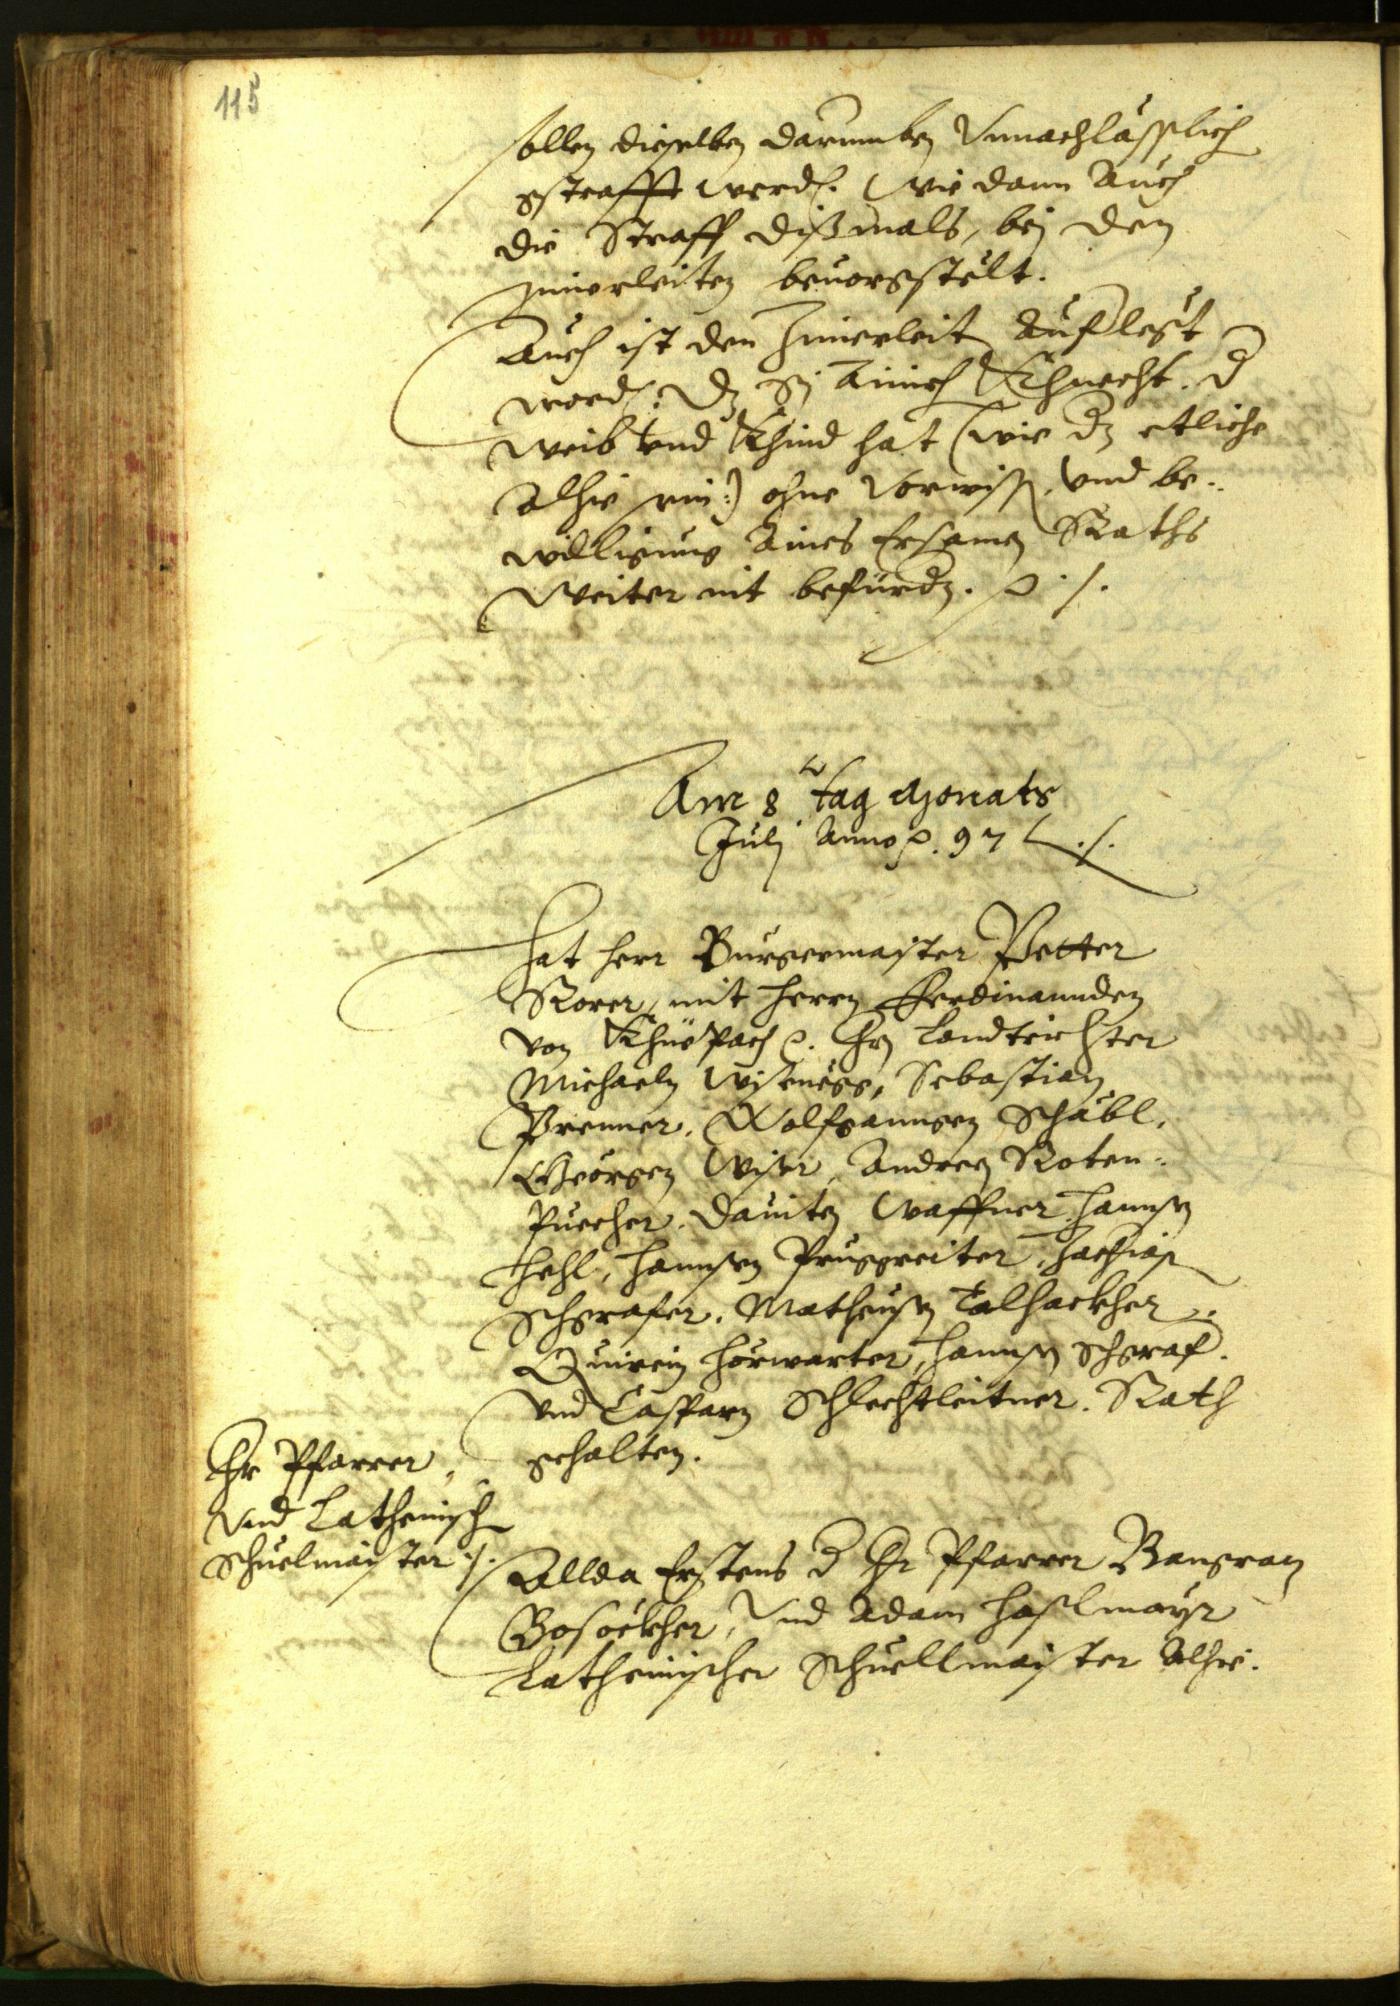 115
sollen dieselben darumben Vnnachlässlich
gstrafft werdn. Wie dann Auch
die Straff dißmals, bej den
Zimerleiten beuorgstelt.
Auch ist den Zimerleit Auferlegt
wordn. Dz Sj Ainich Khnecht. d
weib vnd Khind hat (wie dz etliche
Alhie ein:) ohne Vorwissn, vnd be-
willigung Aines Ersamen Raths
Weiter nit befürdn. ./.
Am 8 tag Monats
Julj Anno 97 ./.
Hat herr Burgermaister Petter
Rorer, mit herrn Ferdinannden
von Khüepach. Hrn Landtrichter
Michaeln Wisenegg, Sebastian
Prenner, Wolfganngen Schäbl,
Georgen Wiser, Andreen Roten-
Puecher, Dauiten Waffner, Hannsen
Hehl, Hannsen Pruggreiter, Zachias
Schgrafer, Matheusen Talhackher,
Quirein Hörwarter, Hannsen Schgraf.
vnd Casparn Schlechtleitner. Rath
gehalten.
Hr Pfarrer,
vnd Lathenisch
Schuelmaister ./.
Allda Erstens d Hr Pfarrer Bangratz
, Vnd Adam Haslmayr
Lathenischer Schuellmaister Alhie.